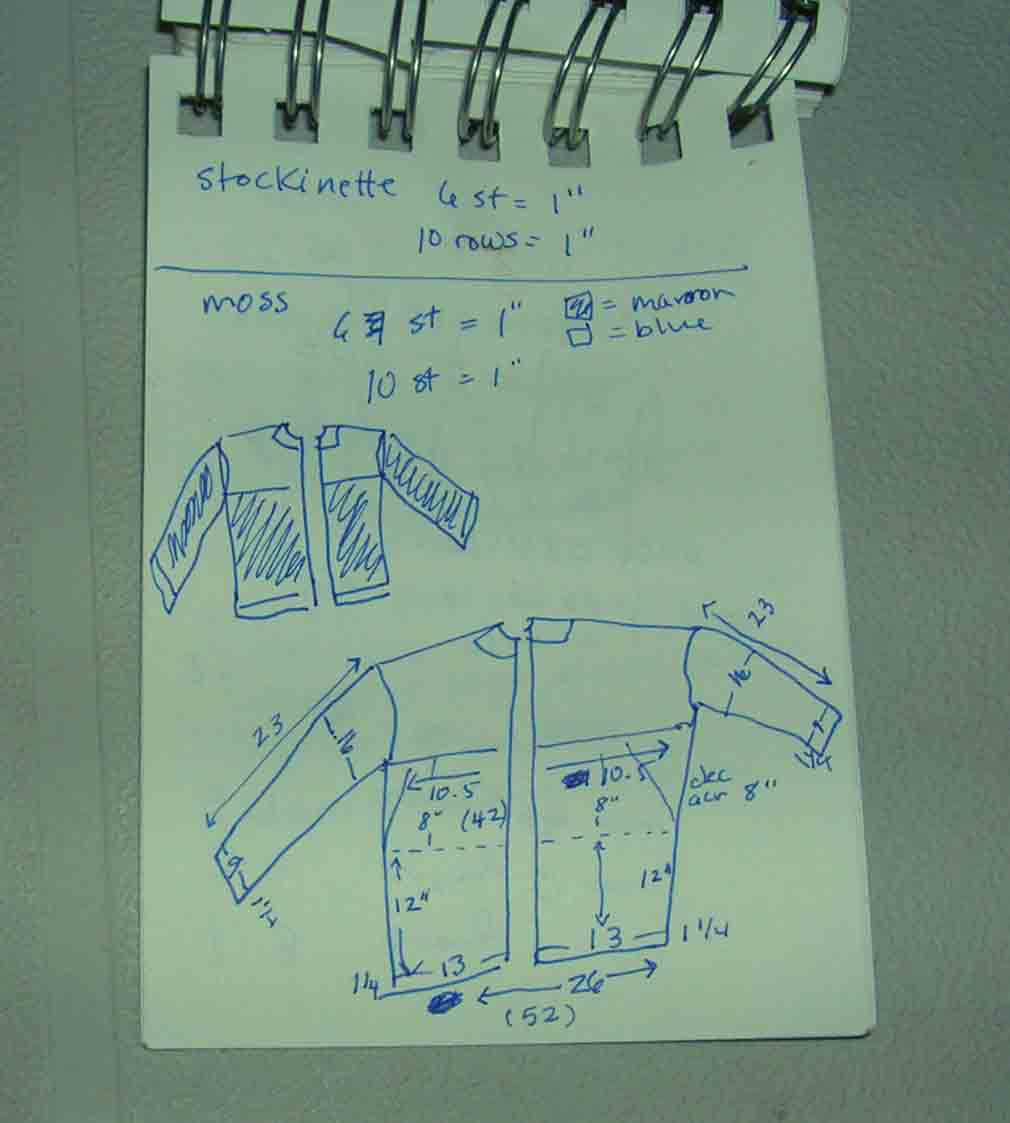 stockinette 6 st = 1"
10 rows = 1"
moss
6 st = 1"
= maroon
= blue
10 st = 1"
maroon
23
23
16
16
10.5
10.5
8" (42)
8"
dec
acr 8"
12"
12"
9
1 1/4
1 1/4
13
13
1 1/4
1 1/4
26
(52)